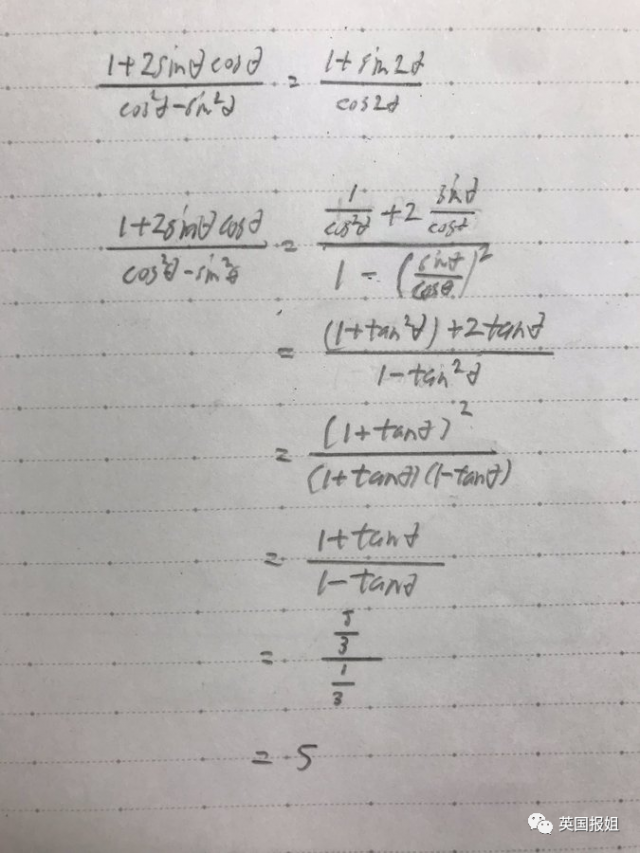 (1+2sinθcosθ)/(cos²θ-sin²θ) = (1+sin2θ)/(cos2θ)
(1+2sinθcosθ)/(cos²θ-sin²θ) = (1/cos²θ + 2 sinθ/cosθ)/(1 - (sinθ/cosθ)²)
= ((1+tan²θ)+2tanθ)/(1-tan²θ)
= (1+tanθ)²/((1+tanθ)(1-tanθ))
= (1+tanθ)/(1-tanθ)
= (5/3)/(1/3)
= 5
英国报姐